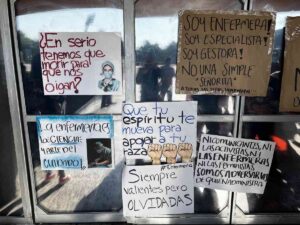 ¿En serio
tenemos que
morir para
que nos
oigan?
SOY ENFERMERA!
SOY ESPECIALISTA!
SOY GESTORA!
NO UNA SIMPLE
"SEÑORITA"
La enfermería
es la CIENCIA
y ARTE del
CUIDADO!
Que tu
espíritu te
mueva para
apoyar a tu
raza
Siempre
valientes pero
OLVIDADAS
NI COMUNICANTES, NI
LAS ACTIVISTAS, NI
LAS ENFERMERAS,
NI LAS FEMINISTAS
SOMOS ADVERSARIAS
DE QUIEN ADMINISTRA